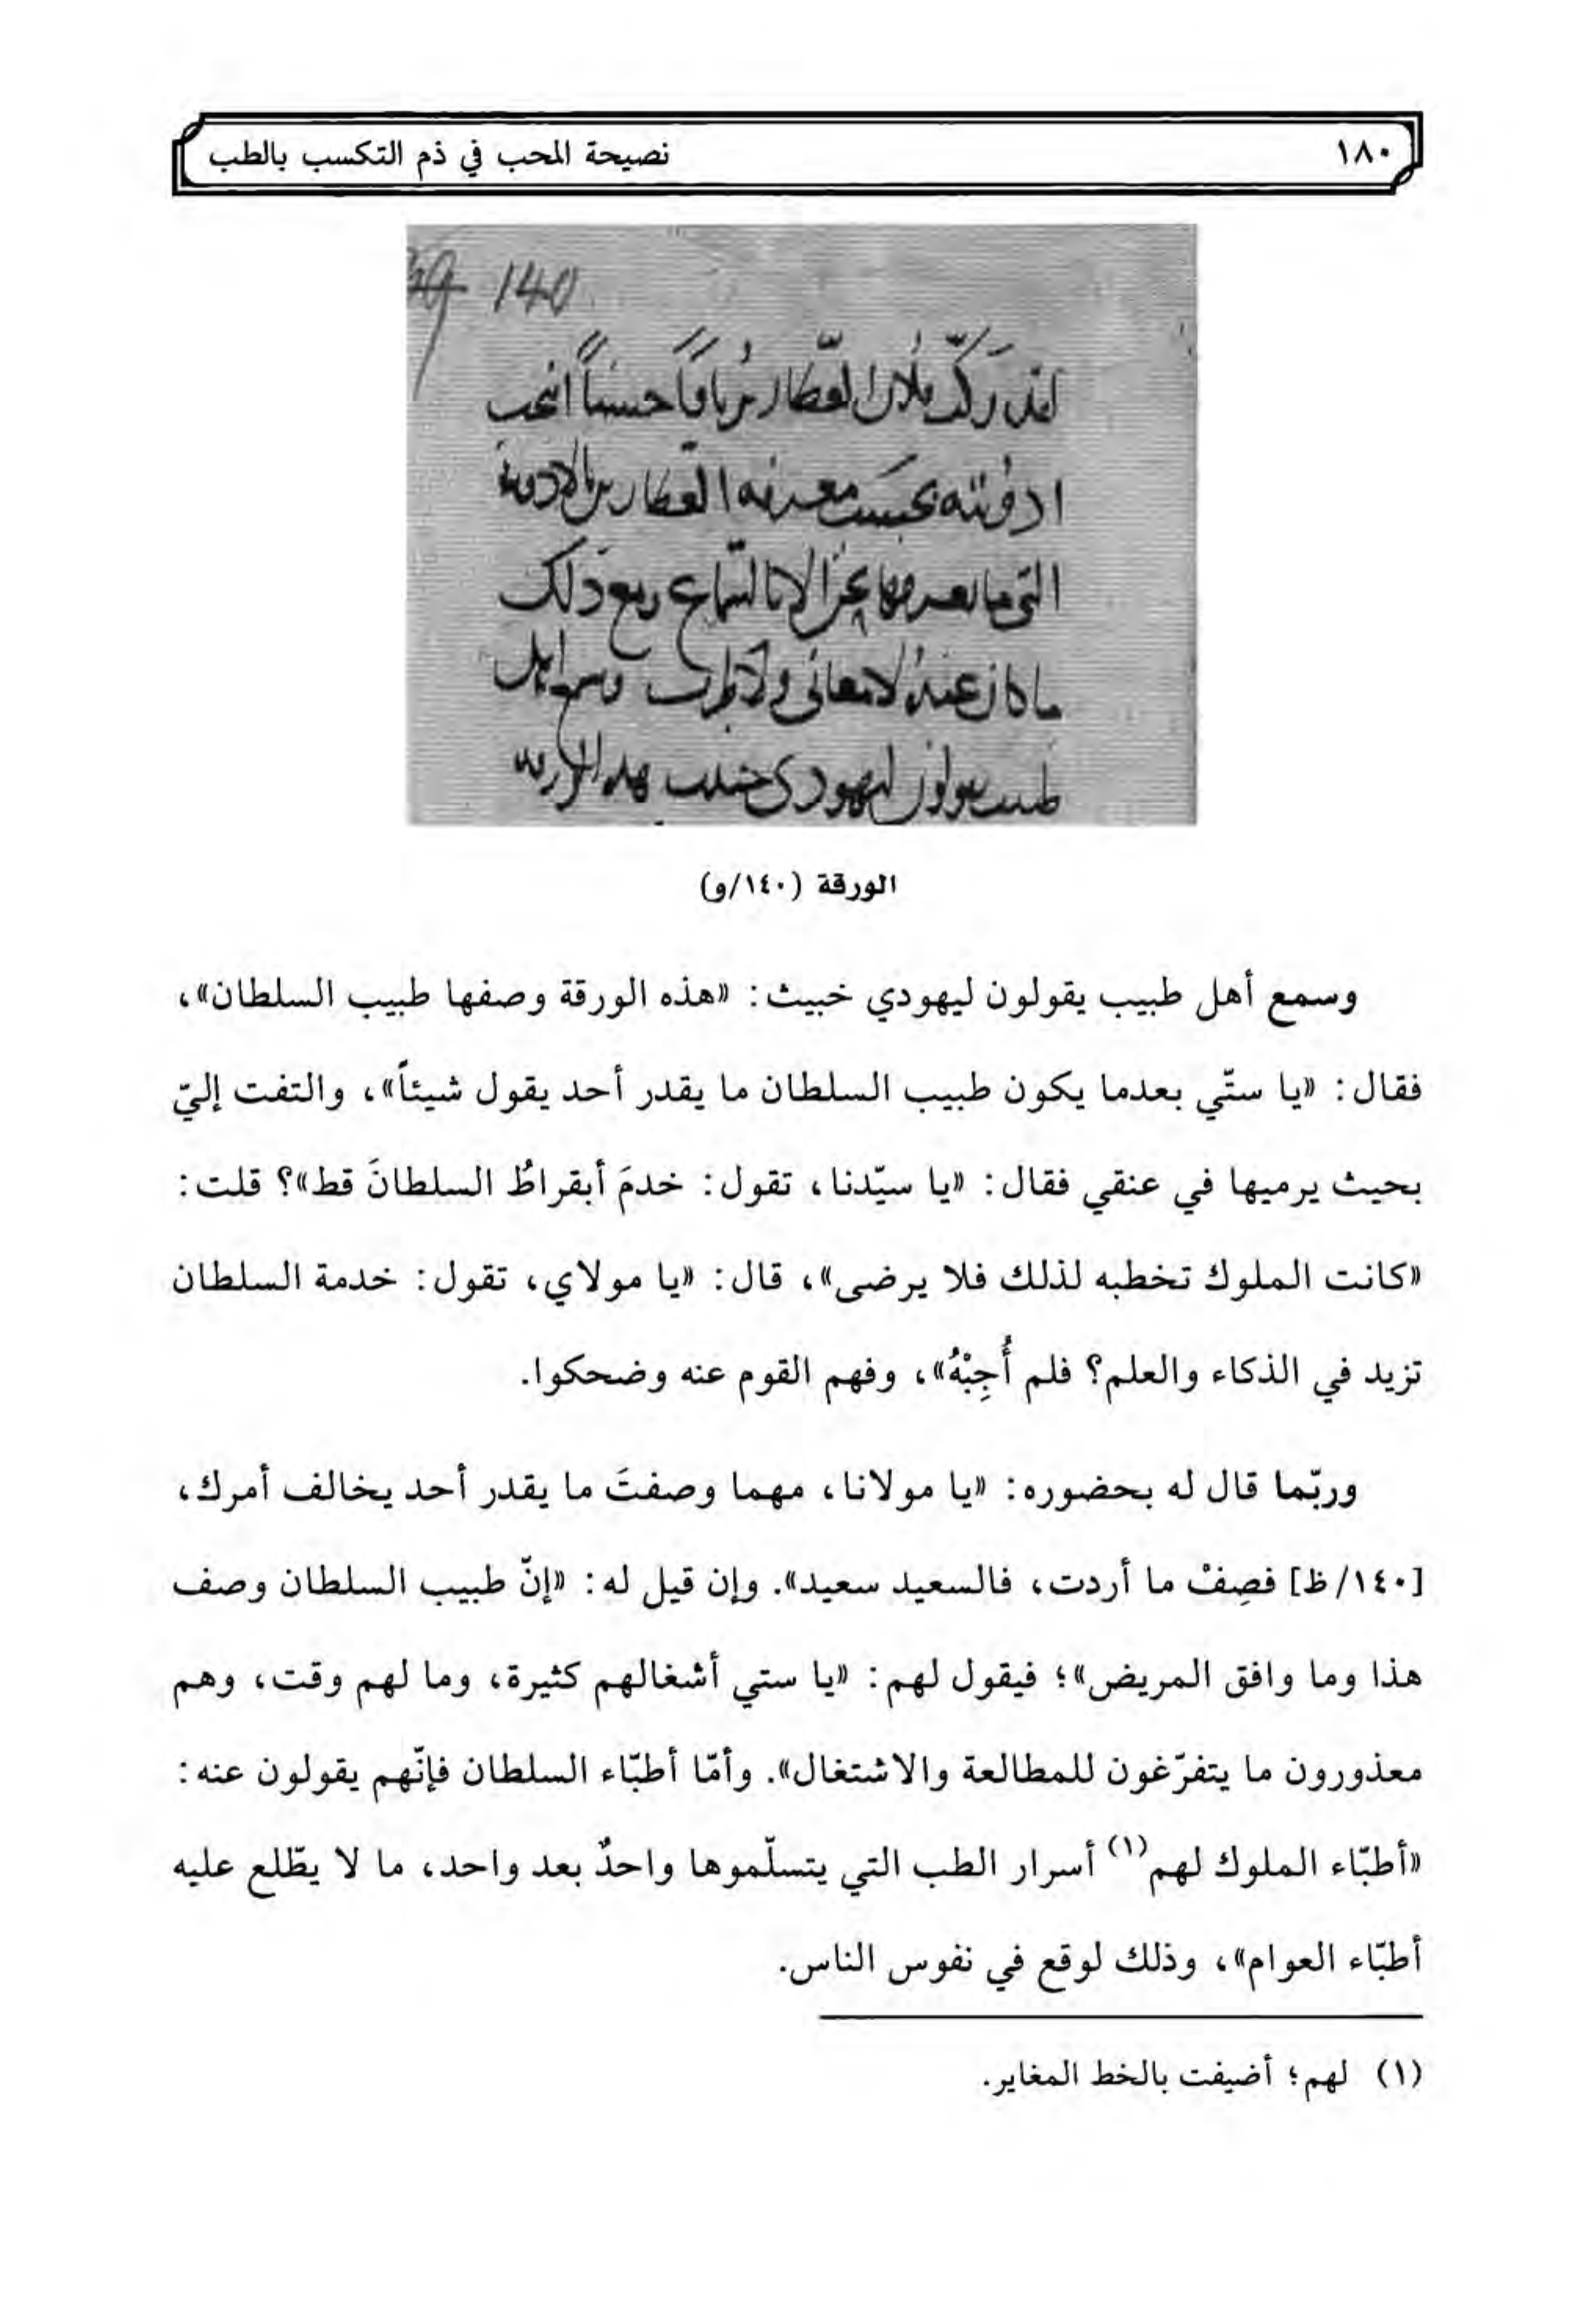 ١٨٠
نصيحة المحب في ذم التكسب بالطب
140
لقد ركّب فلان العطار ترياقاً حسناً انتخب
ادويته بحسب معرفة العطارين بالادوية
التي ما يعرفها نحن الا بالسماع ومع ذلك
ما كان عنده لا معاني ولا وسمع اهل
طبيب يقولون ليهودي خبيث هذه الورقة
الورقة (١٤٠/و)
وسمع أهل طبيب يقولون ليهودي خبيث: «هذه الورقة وصفها طبيب السلطان»،
فقال: «يا ستّي بعدما يكون طبيب السلطان ما يقدر أحد يقول شيئاً»، والتفت إليّ
بحيث يرميها في عنقي فقال: «يا سيّدنا، تقول: خدمَ أبقراطُ السلطانَ قط»؟ قلت:
«كانت الملوك تخطبه لذلك فلا يرضى»، قال: «يا مولاي، تقول: خدمة السلطان
تزيد في الذكاء والعلم؟ فلم أُجِبْهُ»، وفهم القوم عنه وضحكوا.
وربّما قال له بحضوره: «يا مولانا، مهما وصفتَ ما يقدر أحد يخالف أمرك،
[١٤٠/ظ] فصِفْ ما أردت، فالسعيد سعيد». وإن قيل له: «إنّ طبيب السلطان وصف
هذا وما وافق المريض»؛ فيقول لهم: «يا ستي أشغالهم كثيرة، وما لهم وقت، وهم
معذورون ما يتفرّغون للمطالعة والاشتغال». وأمّا أطبّاء السلطان فإنّهم يقولون عنه:
«أطبّاء الملوك لهم(١) أسرار الطب التي يتسلّموها واحدٌ بعد واحد، ما لا يطّلع عليه
أطبّاء العوام»، وذلك لوقع في نفوس الناس.
(١) لهم؛ أضيفت بالخط المغاير.